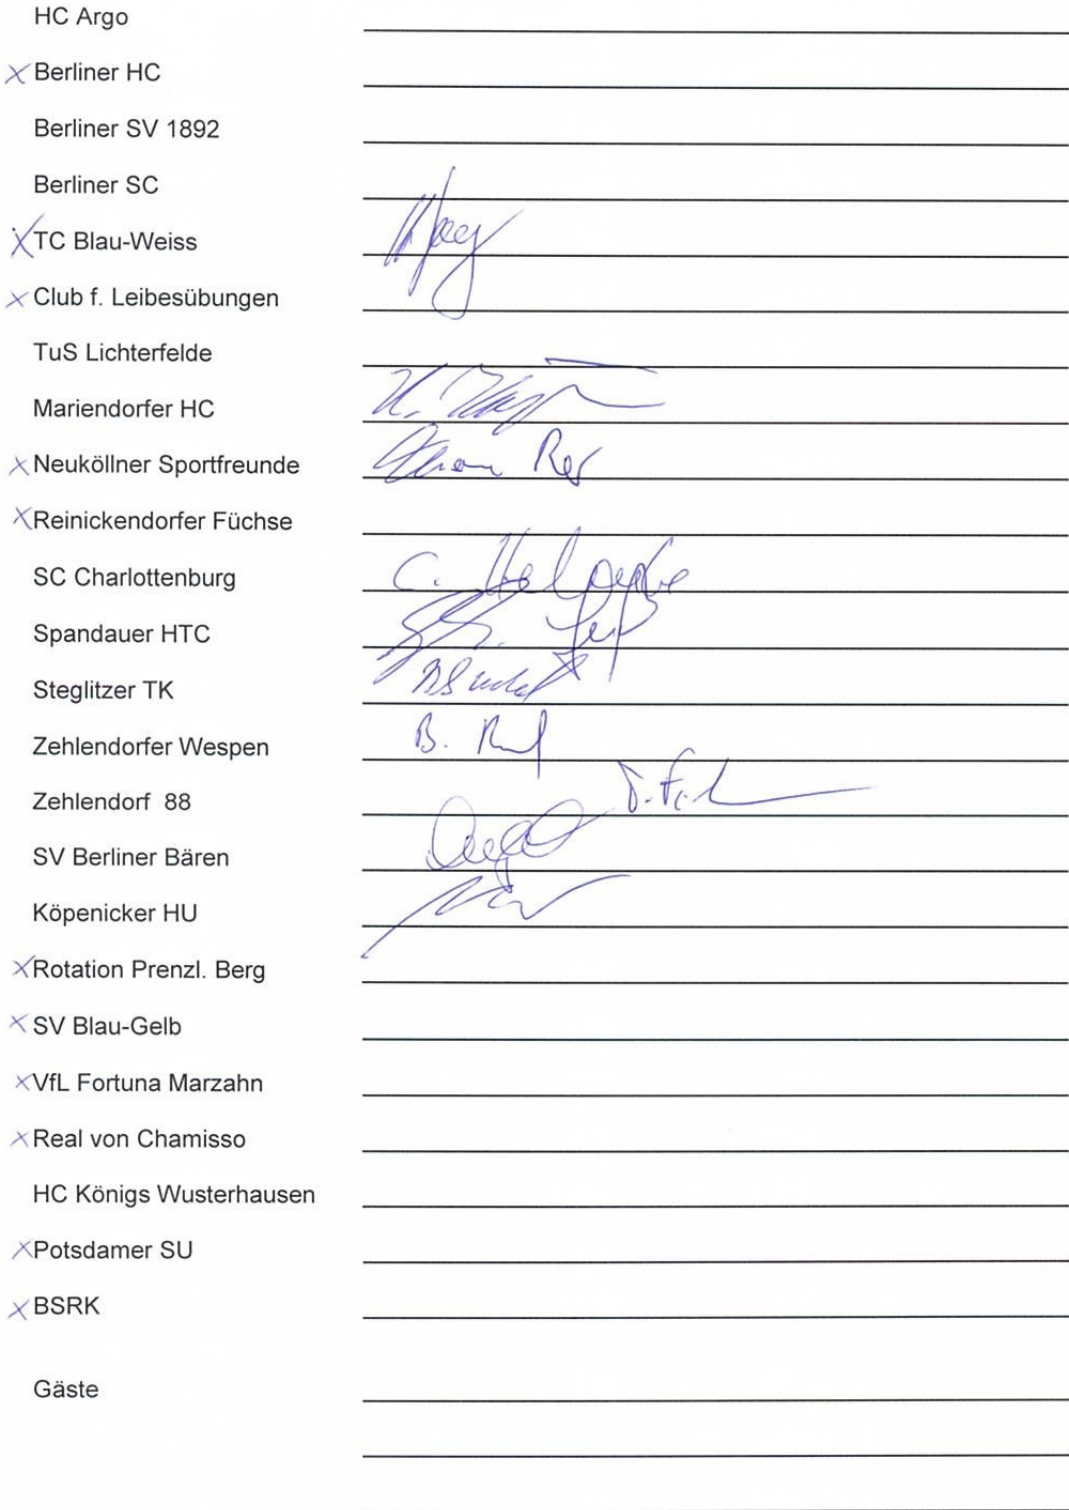 HC Argo
Berliner HC
Berliner SV 1892
Berliner SC
TC Blau-Weiss
Club f. Leibesübungen
TuS Lichterfelde
Mariendorfer HC
Neuköllner Sportfreunde
Reinickendorfer Füchse
SC Charlottenburg
C.
Spandauer HTC
Steglitzer TK
Zehlendorfer Wespen
B.
Zehlendorf 88
SV Berliner Bären
Köpenicker HU
Rotation Prenzl. Berg
SV Blau-Gelb
VfL Fortuna Marzahn
Real von Chamisso
HC Königs Wusterhausen
Potsdamer SU
BSRK
Gäste